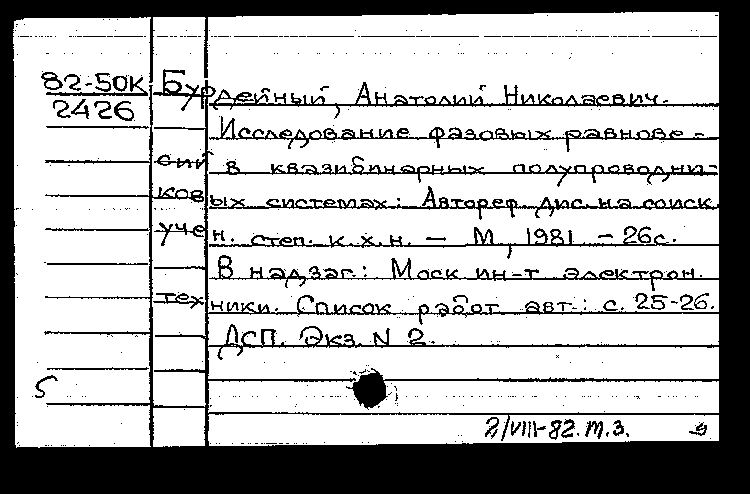 82-50К Бурдейный, Анатолий Николаевич.
2426
Исследование фазовых равнове-
сий в квазибинарных полупроводни-
ковых системах: Автореф. дис. на соиск.
учен. степ. к.х.н. — М., 1981. - 26с.
В надзаг.: Моск ин-т электрон.
техники. Список работ авт.: с. 25-26.
ДСП. Экз. N 2.
2/VIII-82. т.з.